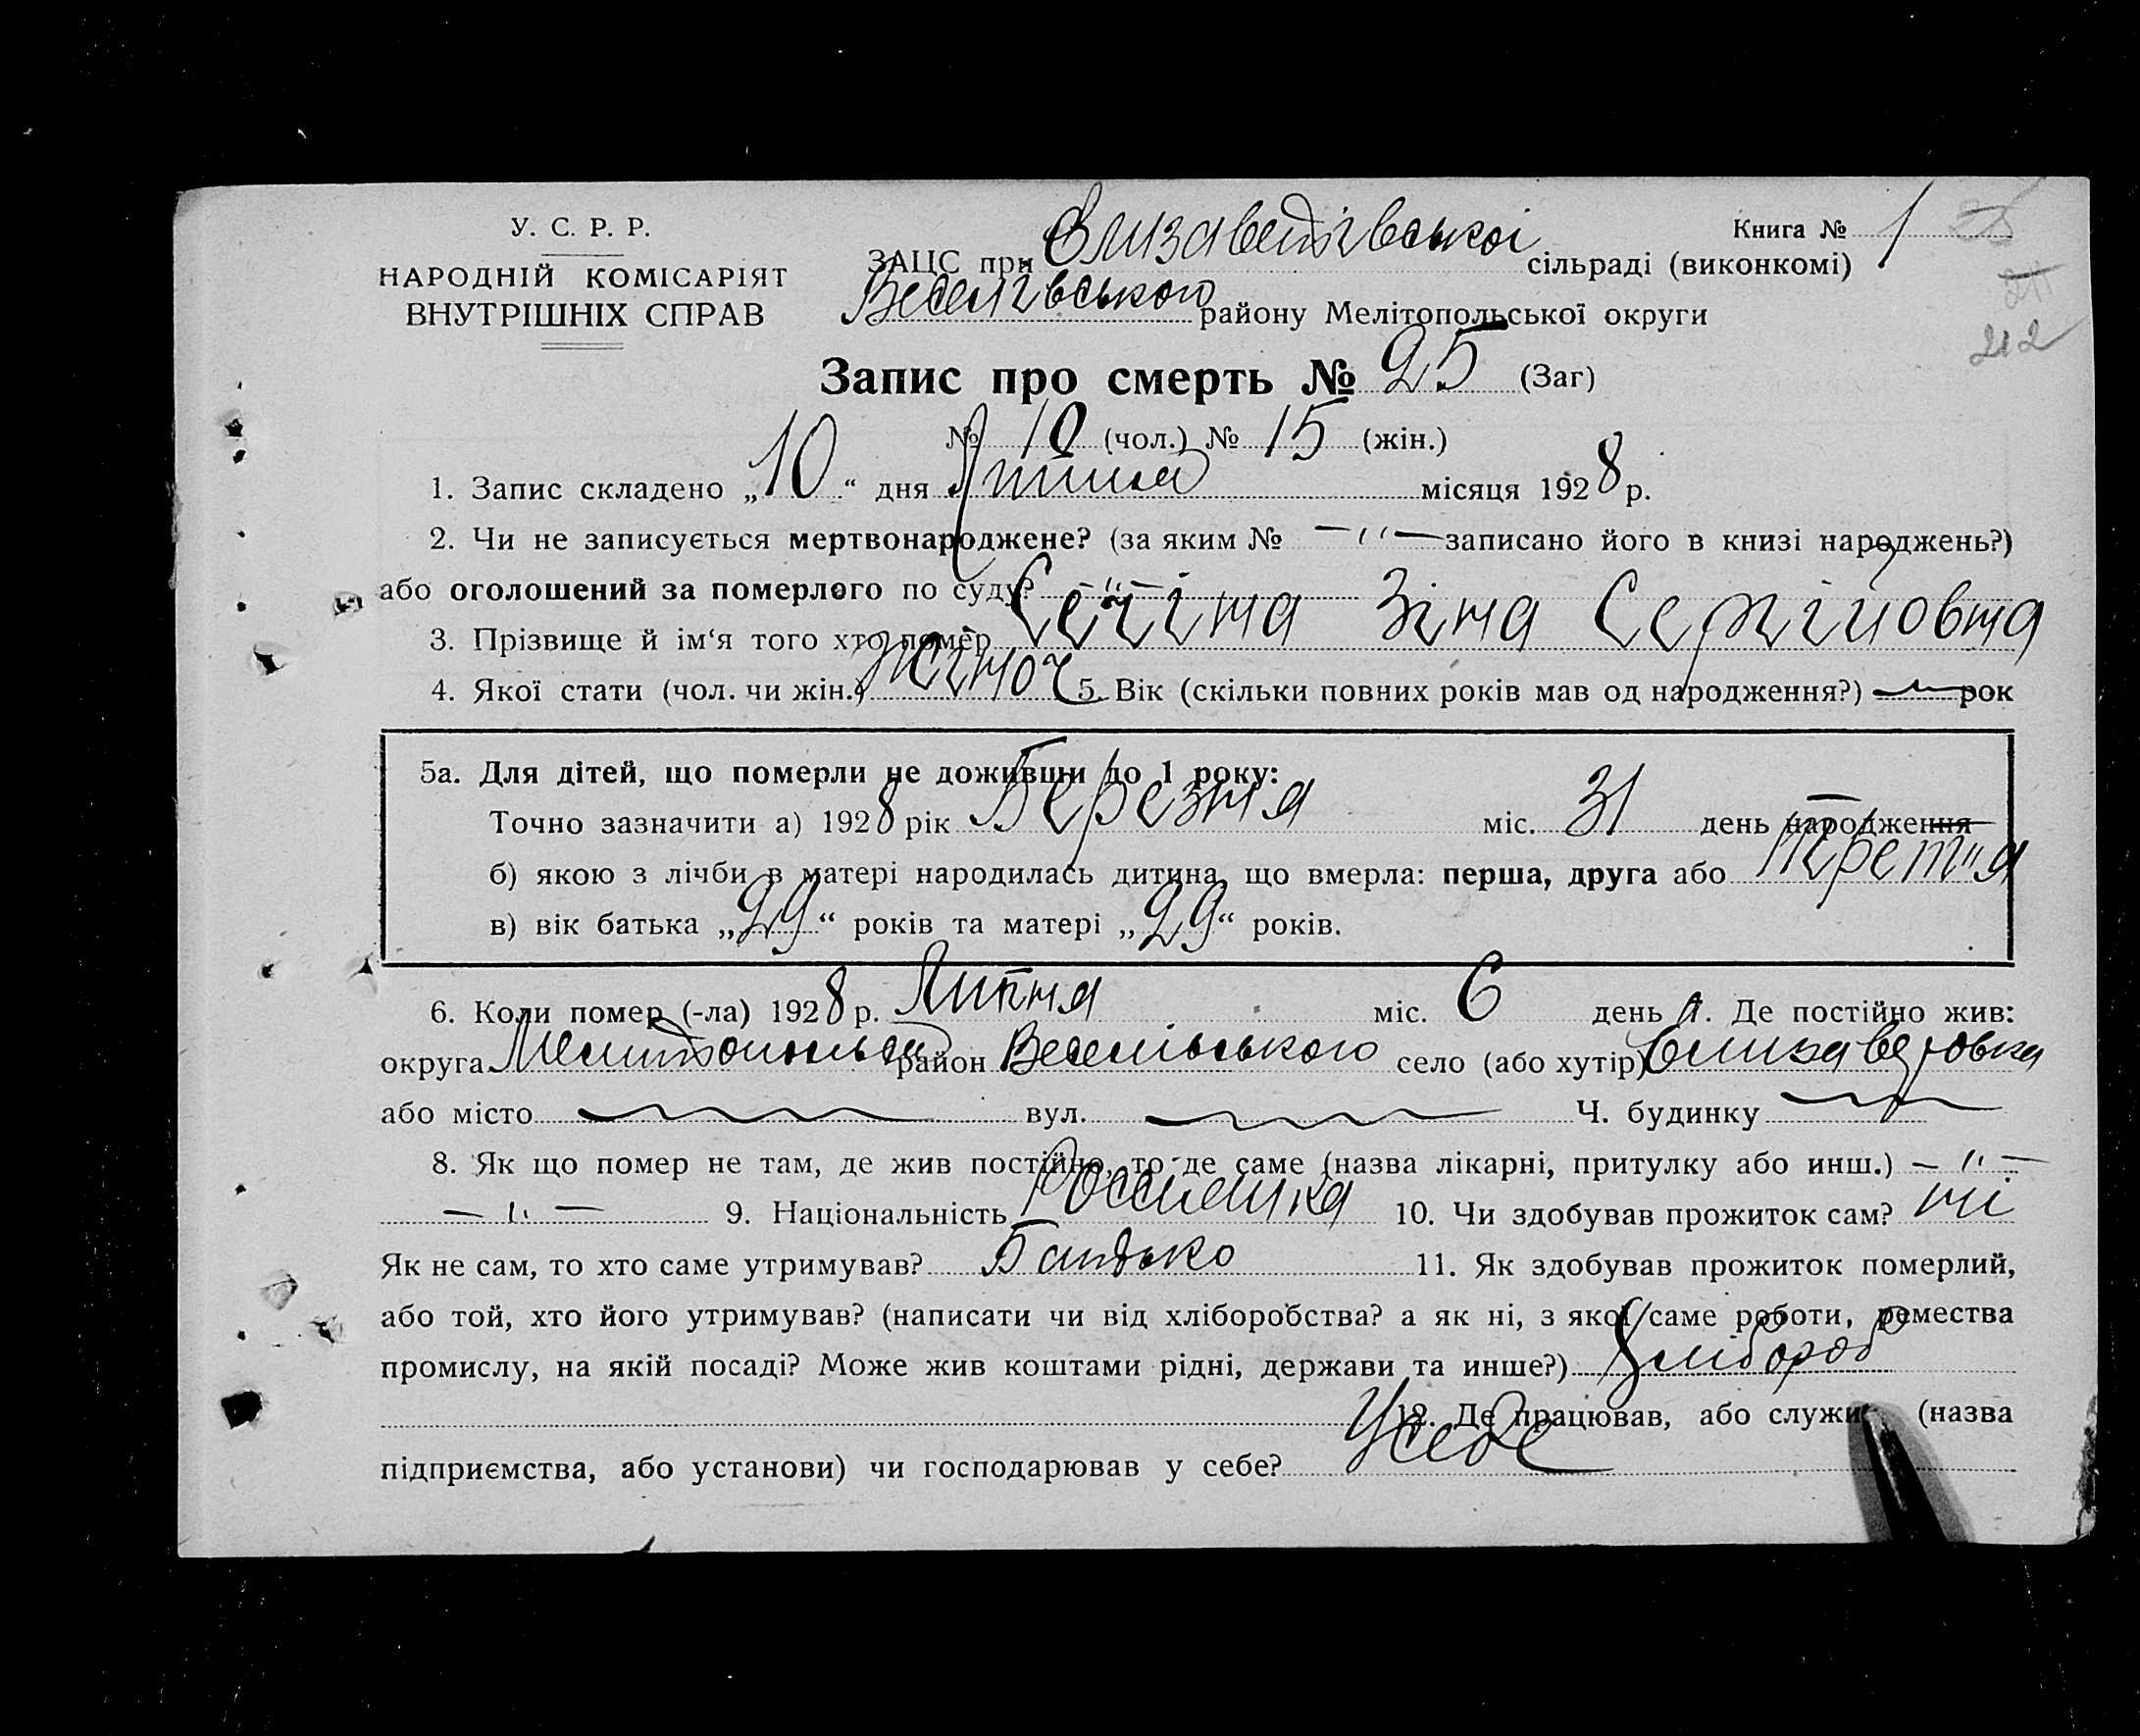 У. С. Р. Р.
НАРОДНІЙ КОМІСАРІЯТ
ВНУТРІШНІХ СПРАВ
Книга № 1
ЗАЦС при Єлизаветівської сільраді (виконкомі)
Веселівського району Мелітопольської округи
212
Запис про смерть № 25 (Заг)
№ 10 (чол.) № 15 (жін.)
1. Запис складено „10“ дня Липня місяця 1928 р.
2. Чи не записується мертвонароджене? (за яким № —"— записано його в книзі народжень?)
або оголошений за померлого по суду? —"—
3. Прізвище й ім‘я того хто помер Зіна Сергійовна
4. Якої стати (чол. чи жін.) жіноч 5. Вік (скільки повних років мав од народження?) — рок
5а. Для дітей, що померли не доживши до 1 року:
Точно зазначити а) 1928 рік Березня міс. 31 день народження
б) якою з лічби в матері народилась дитина, що вмерла: перша, друга або третія
в) вік батька „29“ років та матері „29“ років.
6. Коли помер (-ла) 1928 р. Липня міс. 6 день 7. Де постійно жив:
округа район Веселівського село (або хутір) Єлизаветовка
або місто вул. Ч. будинку
8. Як що помер не там, де жив постійно, то де саме (назва лікарні, притулку або инш.) —"—
—"— 9. Національність 10. Чи здобував прожиток сам? ні
Як не сам, то хто саме утримував? Батько 11. Як здобував прожиток померлий,
або той, хто його утримував? (написати чи від хліборобства? а як ні, з якої саме роботи, ремества
промислу, на якій посаді? Може жив коштами рідні, держави та инше?) Хлібороб
12. Де працював, або служив (назва
підприємства, або установи) чи господарював у себе? У себе